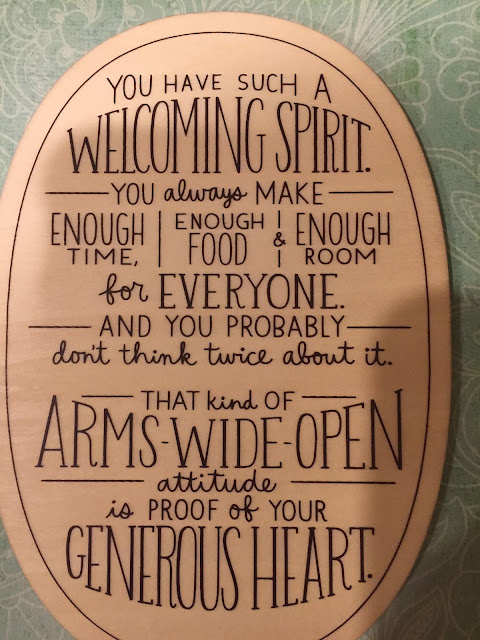 YOU HAVE SUCH A
WELCOMING SPIRIT.
YOU always MAKE
ENOUGH TIME, ENOUGH FOOD & ENOUGH ROOM
for EVERYONE.
AND YOU PROBABLY
don't think twice about it.
THAT kind OF
ARMS-WIDE-OPEN
attitude
is PROOF of YOUR
GENEROUS HEART.